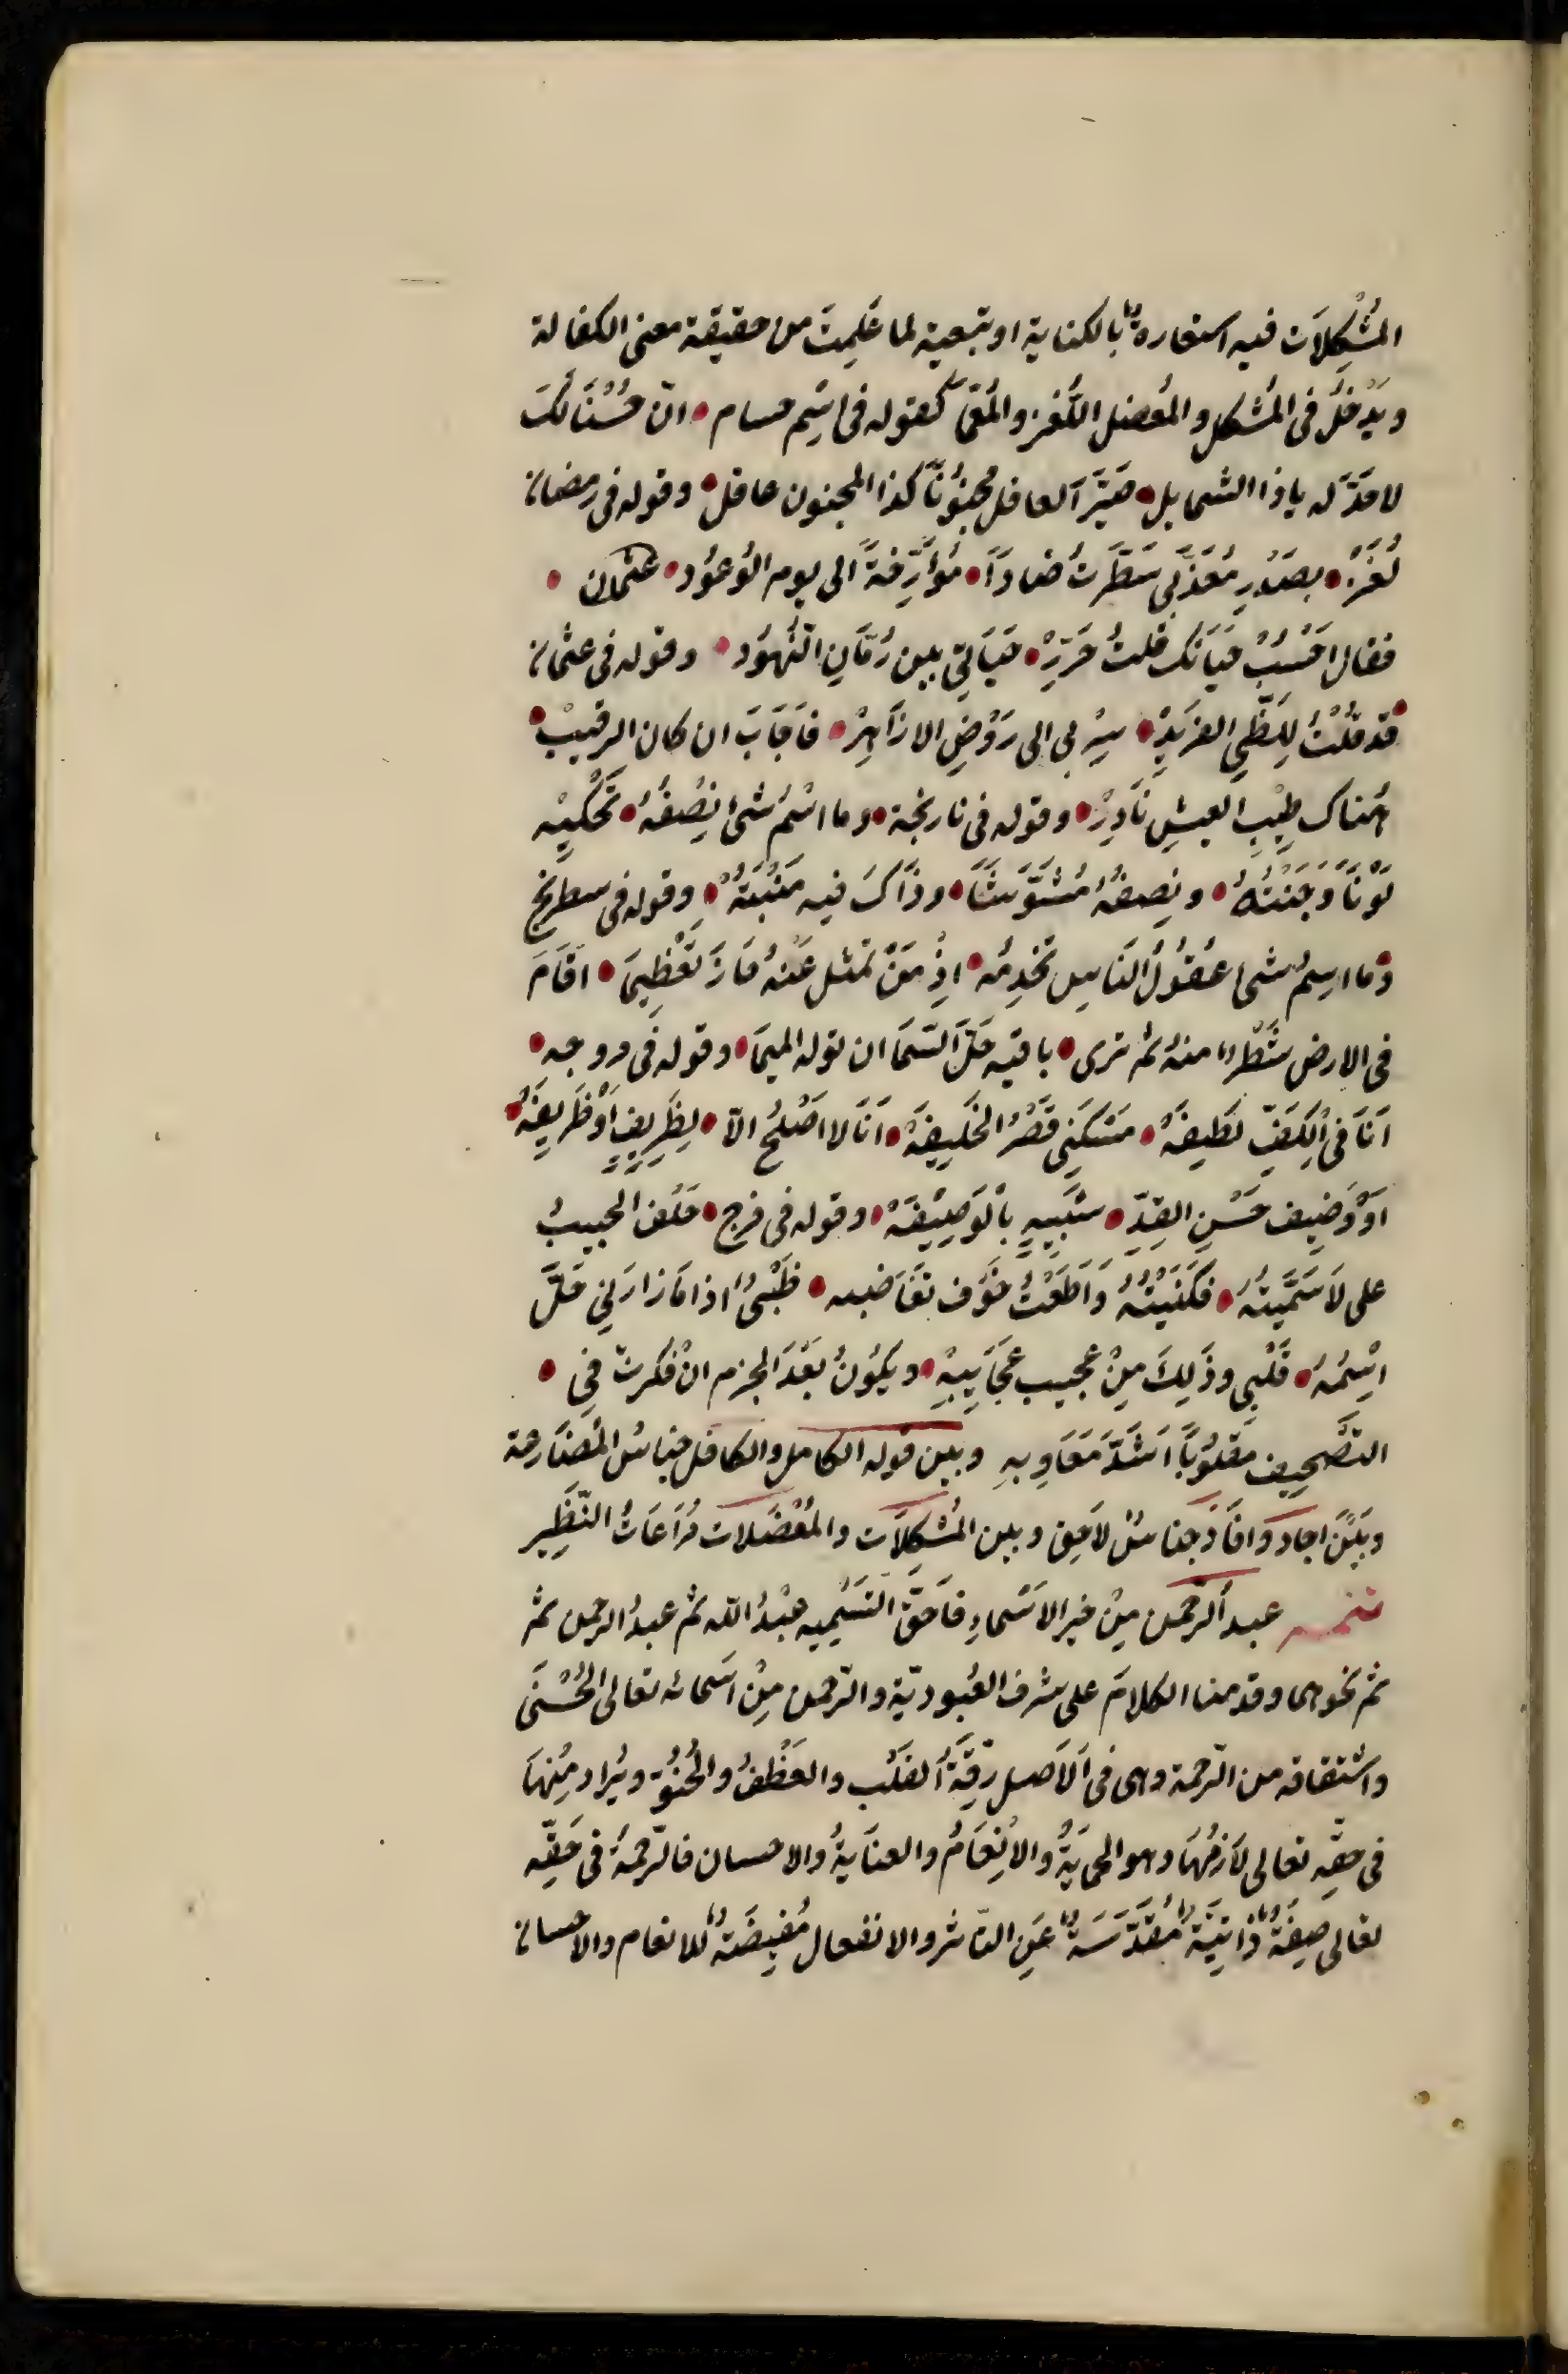 المُشْكِلَات فيه استعارةٌ بالكناية او تبعية لما عَلِمتَ من حقيقة معنى الكفالة
ويَدْخُلُ فى المُشكل والمُعضل اللُّغز والمُعَمَّى كقوله فى اسْم حسام • انّ حُسْنًا لَكَ
لا حَدَّ له ياذا الشمايل • صَيَّرَ العاقل مَجنُونًا كذا المجنون عاقل • وقوله فى رمضان
لُغَزْ • بصَدْرِ مُعَذِّبى سَطَّرتُ ضادًا • مُؤَرِّخةً الى يوم الوُعُود • عثمان •
فقال احْسُبْ حَيَاتك قلتُ حَرِّرْ • حَيَاتِى بين رُمّانِ النُّهُود • وقوله فى عثمان
• قد قُلْتُ لِلظَّبى الغريرْ • سِرْ بى الى رَوْضِ الازَاهِرْ • فَاجَابَ ان كان الرقيبْ •
هُناك طِيْبِ العيشِ نَادِرْ • وقوله فى نارنجة • وما اسْمُ شئ نِصْفُهُ • تَحْكِيْه
لَوْنًا وَجَنْتُهُ • ونِصفهُ مُشَوَّشًا • وذَاكَ فيه مَنْبَتُهْ • وقوله فى سطرنج
وَما اسِمُ شى عُقُولُ النَاسِ تَخدِمُه • اِذْ مَنْ تمثل عَنْهُ حَازَ تَعْظِيمَا • اقَامَ
فى الارض شَطْرٌ منهُ ثم ترى • باقيه حَلَّ السَّمَا ان توله الميمَا • وقوله فى مروحه •
اَنَا فى الكَفِّ لَطِيفَهْ • مَسْكَنِى قَصْرُ الخَلِيفَهْ • اَنَا لا اَصْلُحُ الّا • لِظَرِيفٍ اَوْ ظَرِيفَهْ •
اوْ وَصِيف حَسَنِ القِدِّ • شَبِيهٍ بالوَصِيْفَهْ • وقوله فى فرج • حَلَفَ الحبيبُ
على لَا سَمَّيتهُ • فَكَنَيْتُهُ وَاَطَعْتُ خَوْف تغَاضبه • ظَبْىٌ اذا مَا زارَنِى حَلَّ
اسْمُهُ • قَلْبِى وذَلِكَ مِنْ عجيب عجَايِبِهْ • ويكُونُ بَعْدَ الجزم انْ فكرتَ فِى •
التَّصْحِيف مَقْلُوبًا اَشَدَّ مَعَايِبِهِ وبين قوله الكامل والكافل جناسُ المُضَارعة
وبَيْنَ اجاد وَافَادَ جناسُ لاحِق وبين المُشكِلَات والمُعْضَلات مُرَاعَاتُ النَّظِير
تتمه عبد الرَّحمن مِنْ خير الاسْماءِ فاَحَقّ التَسْمِيه عَبْدُ الله ثم عبدُ الرحمن ثم
ثم نحوها وقدمنا الكلامَ على شرف العُبوديّة والرّحمن مِنْ اَسمائه تعالى الحُسْنَى
واشتقاقه من الرّحمة وهى فى الاَصل رقّةُ القَلْب والعَطْفُ والحُنوُّ ويُراد مِنْهَا
فى حقّهِ تعالى لَازِمُهَا وهو الحمايَةُ والاِنْعَامُ والعنَايةُ والاحسان فالرّحمةُ فى حَقِّه
تعالى صِفَةٌ ذاتيّةٌ مُقَدَّسَةٌ عَنِ التاثر والانفعال مُفِيضَةٌ للانعام والاحسان